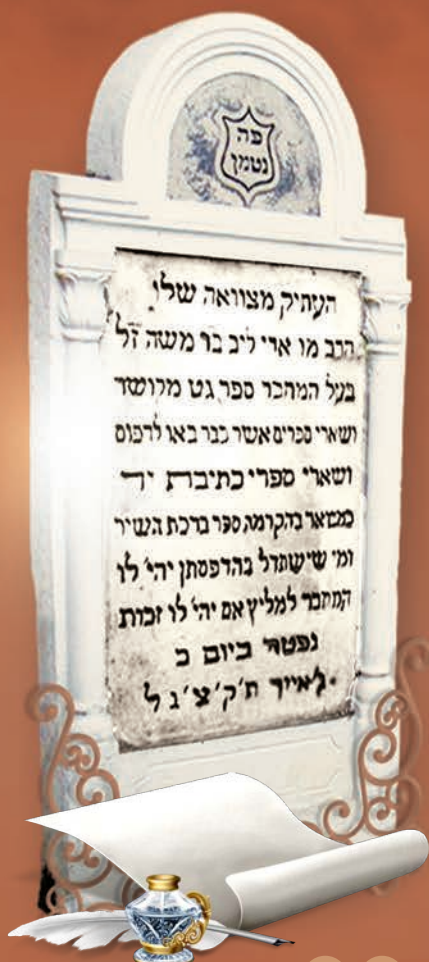 פה
נטמן
העתיק מצוואה שלו
הרב מו ארי ליב בר משה זל
בעל המחבר ספר גט מקושר
ושארי ספרים אשר כבר באו לדפוס
ושארי ספרי כתיבת יד
כמבואר בהקדמה ספר ברכת השיר
ומי שישתדל בהדפסתן יהי׳ לו
המחבר למליץ אם יהי׳ לו זכות
נפטר ביום כ
לאייר ת׳ק׳צ׳ג ל